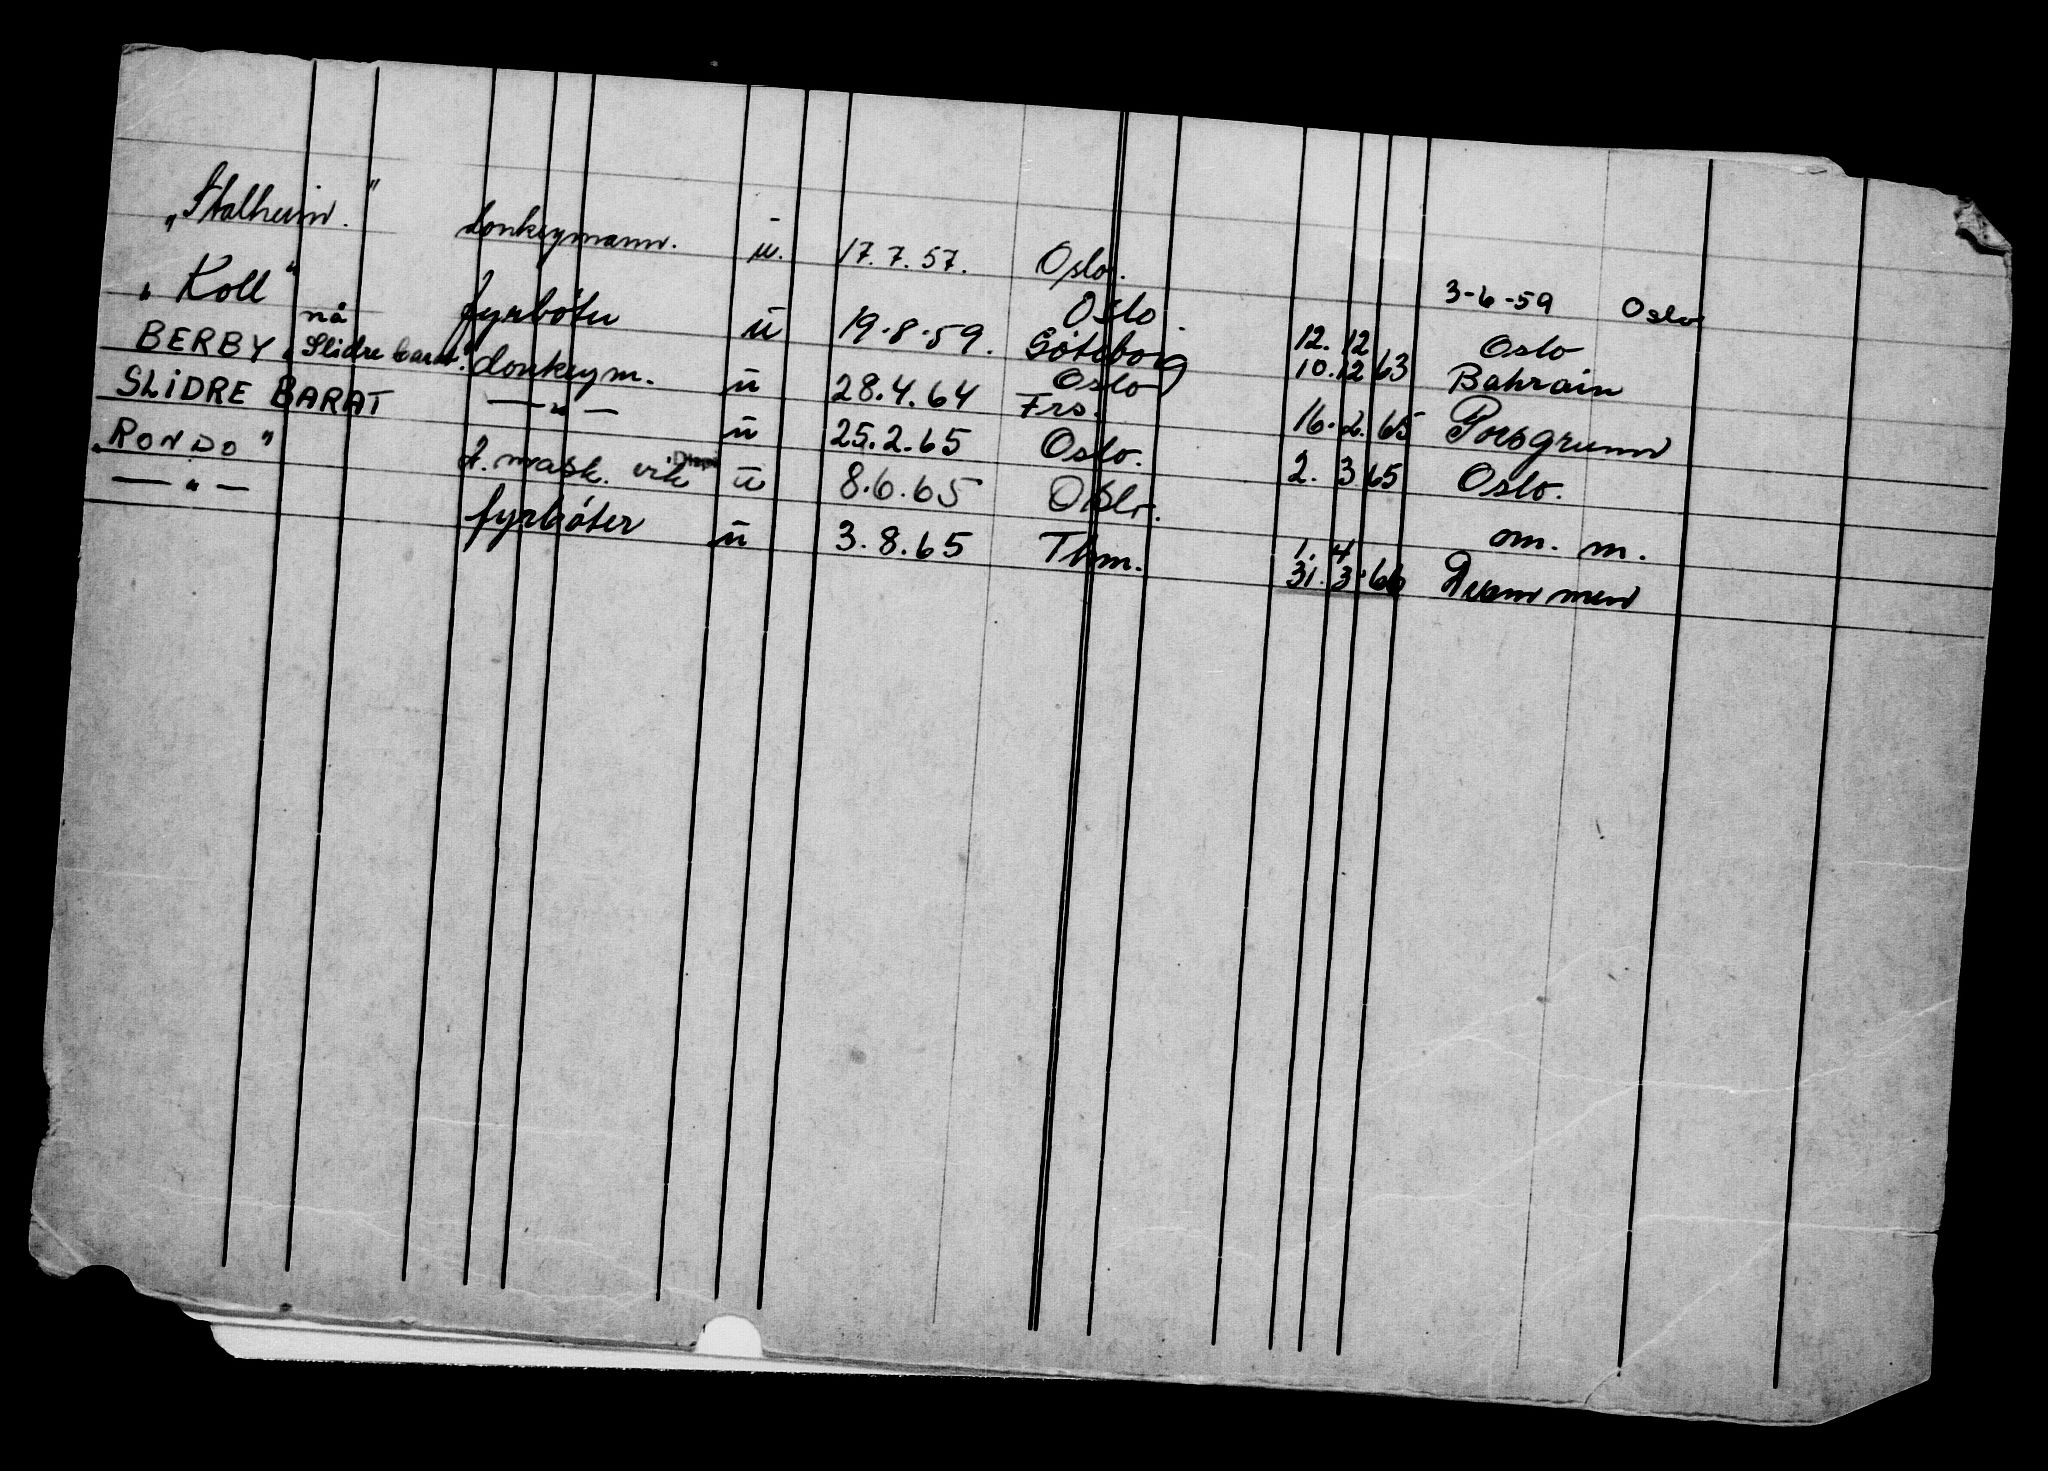 „Stalheim." donkeymann. ū. 17.7.57. Oslo. 3-6-59 Oslo
„Koll" fyrbøter ū 19.8.59. Oslo. Göteborg 12.12 10.12 63 Oslo Bahrain
BERBY nå „Slidre barat." donkeym. ū 28.4.64 Oslo Frs. 16.2.65 Porsgrunn
SLIDRE BARAT —"— ū 25.2.65 Oslo. 2.3.65 Oslo.
„RONDO" 2. mask. vik Disp ū 8.6.65 Oslo. om. m.
—"— fyrbøter ū 3.8.65 Thm. 1.4 31.3.66 Drammen